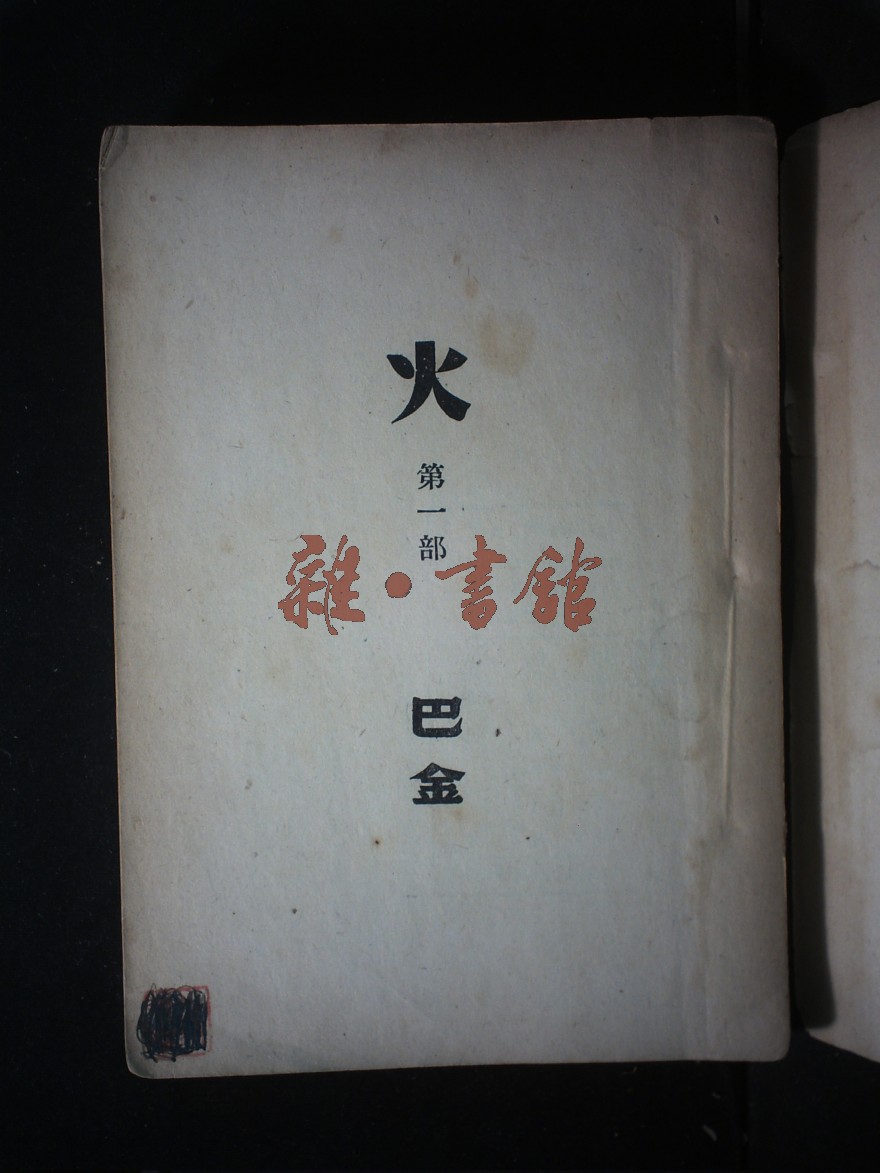 火
第一部
雜·書館
巴金